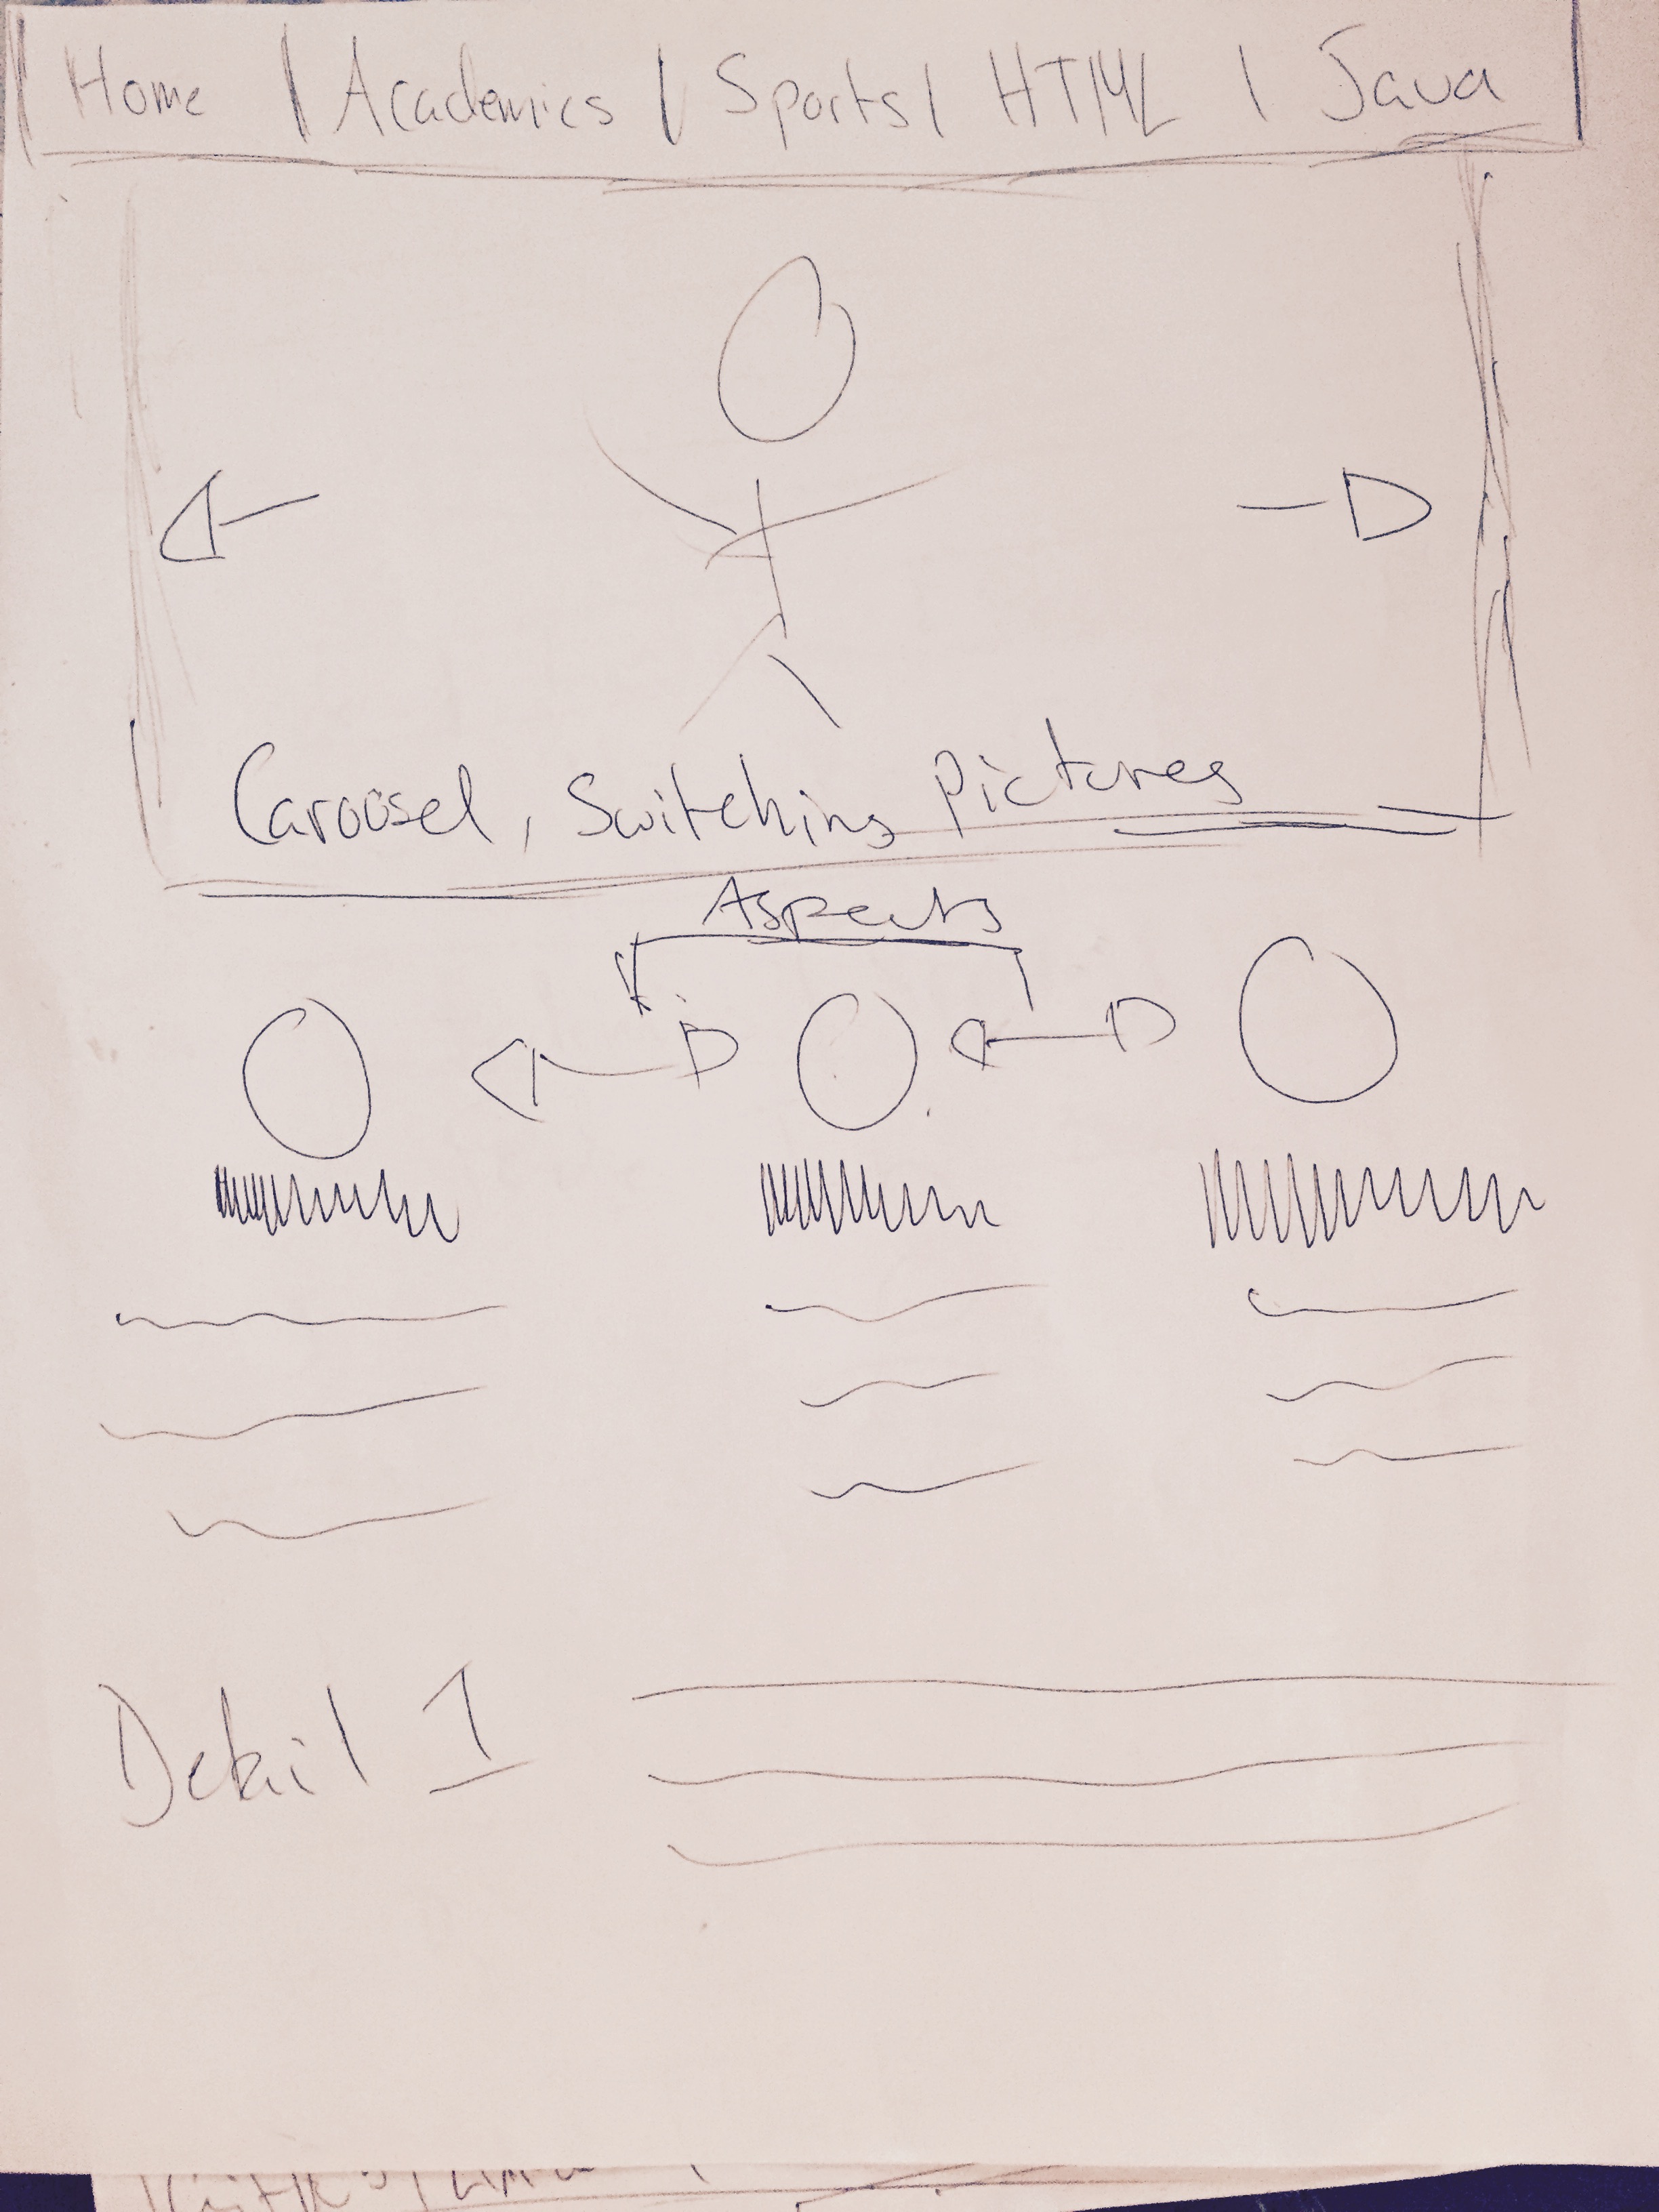 Home | Academics | Sports | HTML | Java
Carousel, Switching Pictures
Aspects
Detail 1